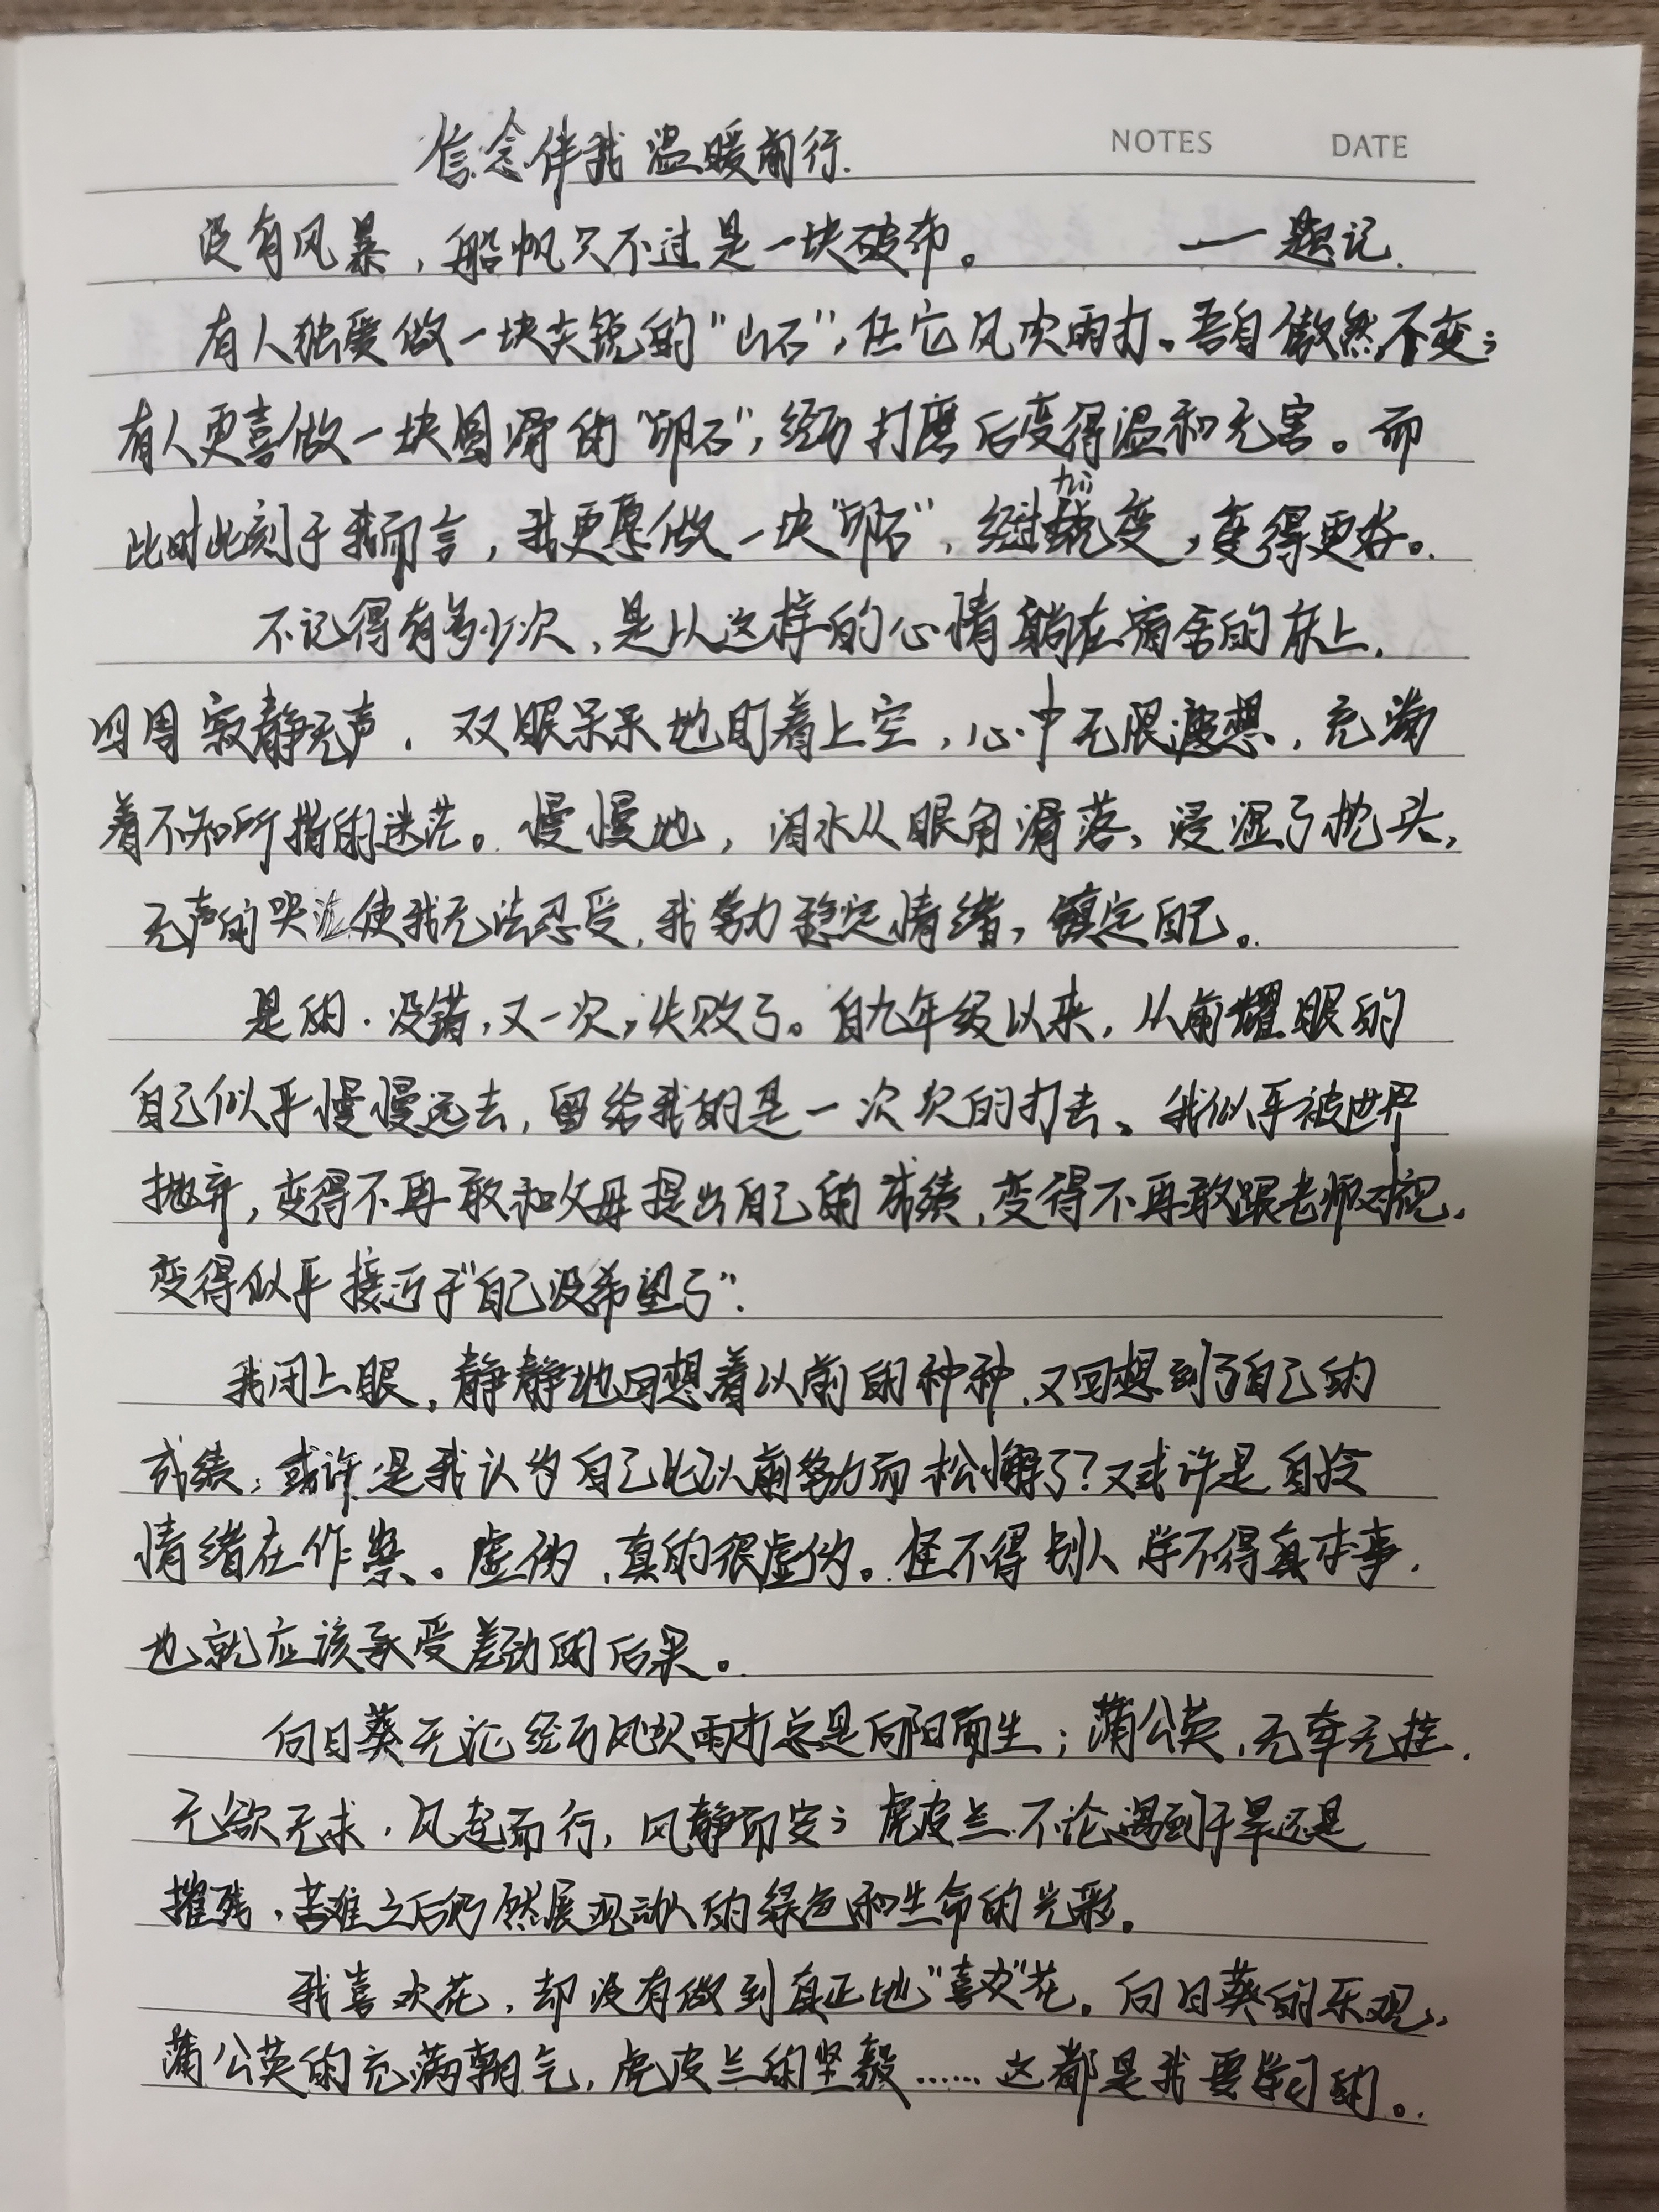 NOTES DATE
信念伴我温暖前行.
没有风暴，船帆只不过是一块破布。 ——题记.
有人独爱做一块尖锐的“山石”，任它风吹雨打。吾自傲然不变；
有人更喜做一块圆滑的“卵石”，经历打磨后变得温和无害。而
此时此刻于我而言，我更愿做一块“卵石”，经过蜕变，变得更好。
不记得有多少次，是以这样的心情躺在宿舍的床上，
四周寂静无声，双眼呆呆地盯着上空，心中无限遐想，充满
着不知所措的迷茫。慢慢地，泪水从眼角滑落，浸湿了枕头，
无声的哭泣使我无法忍受，我努力稳定情绪，镇定自己。
是的.没错，又一次，失败了。自九年级以来，从前耀眼的
自己似乎慢慢远去，留给我的是一次次的打击。我似乎被世界
抛弃，变得不再敢和父母提出自己的成绩，变得不再敢跟老师对视，
变得似乎接近于“自己没希望了”.
我闭上眼，静静地回想着以前的种种，又回想到了自己的
成绩，或许是我认为自己比以前努力而松懈了？又或许是自冷
情绪在作祟。虚伪，真的很虚伪。怪不得别人学不得真本事，
也就应该承受差劲的后果。
向日葵无论经历风吹雨打总是向阳而生；蒲公英，无牵无挂，
无欲无求，风起而行，风静而安；虎皮兰不论遇到干旱还是
摧残，苦难之后仍然展现动人的绿色和生命的光彩。
我喜欢花，却没有做到真正地“喜欢”花。向日葵的乐观，
蒲公英的充满朝气，虎皮兰的坚毅……这都是我要学习的。